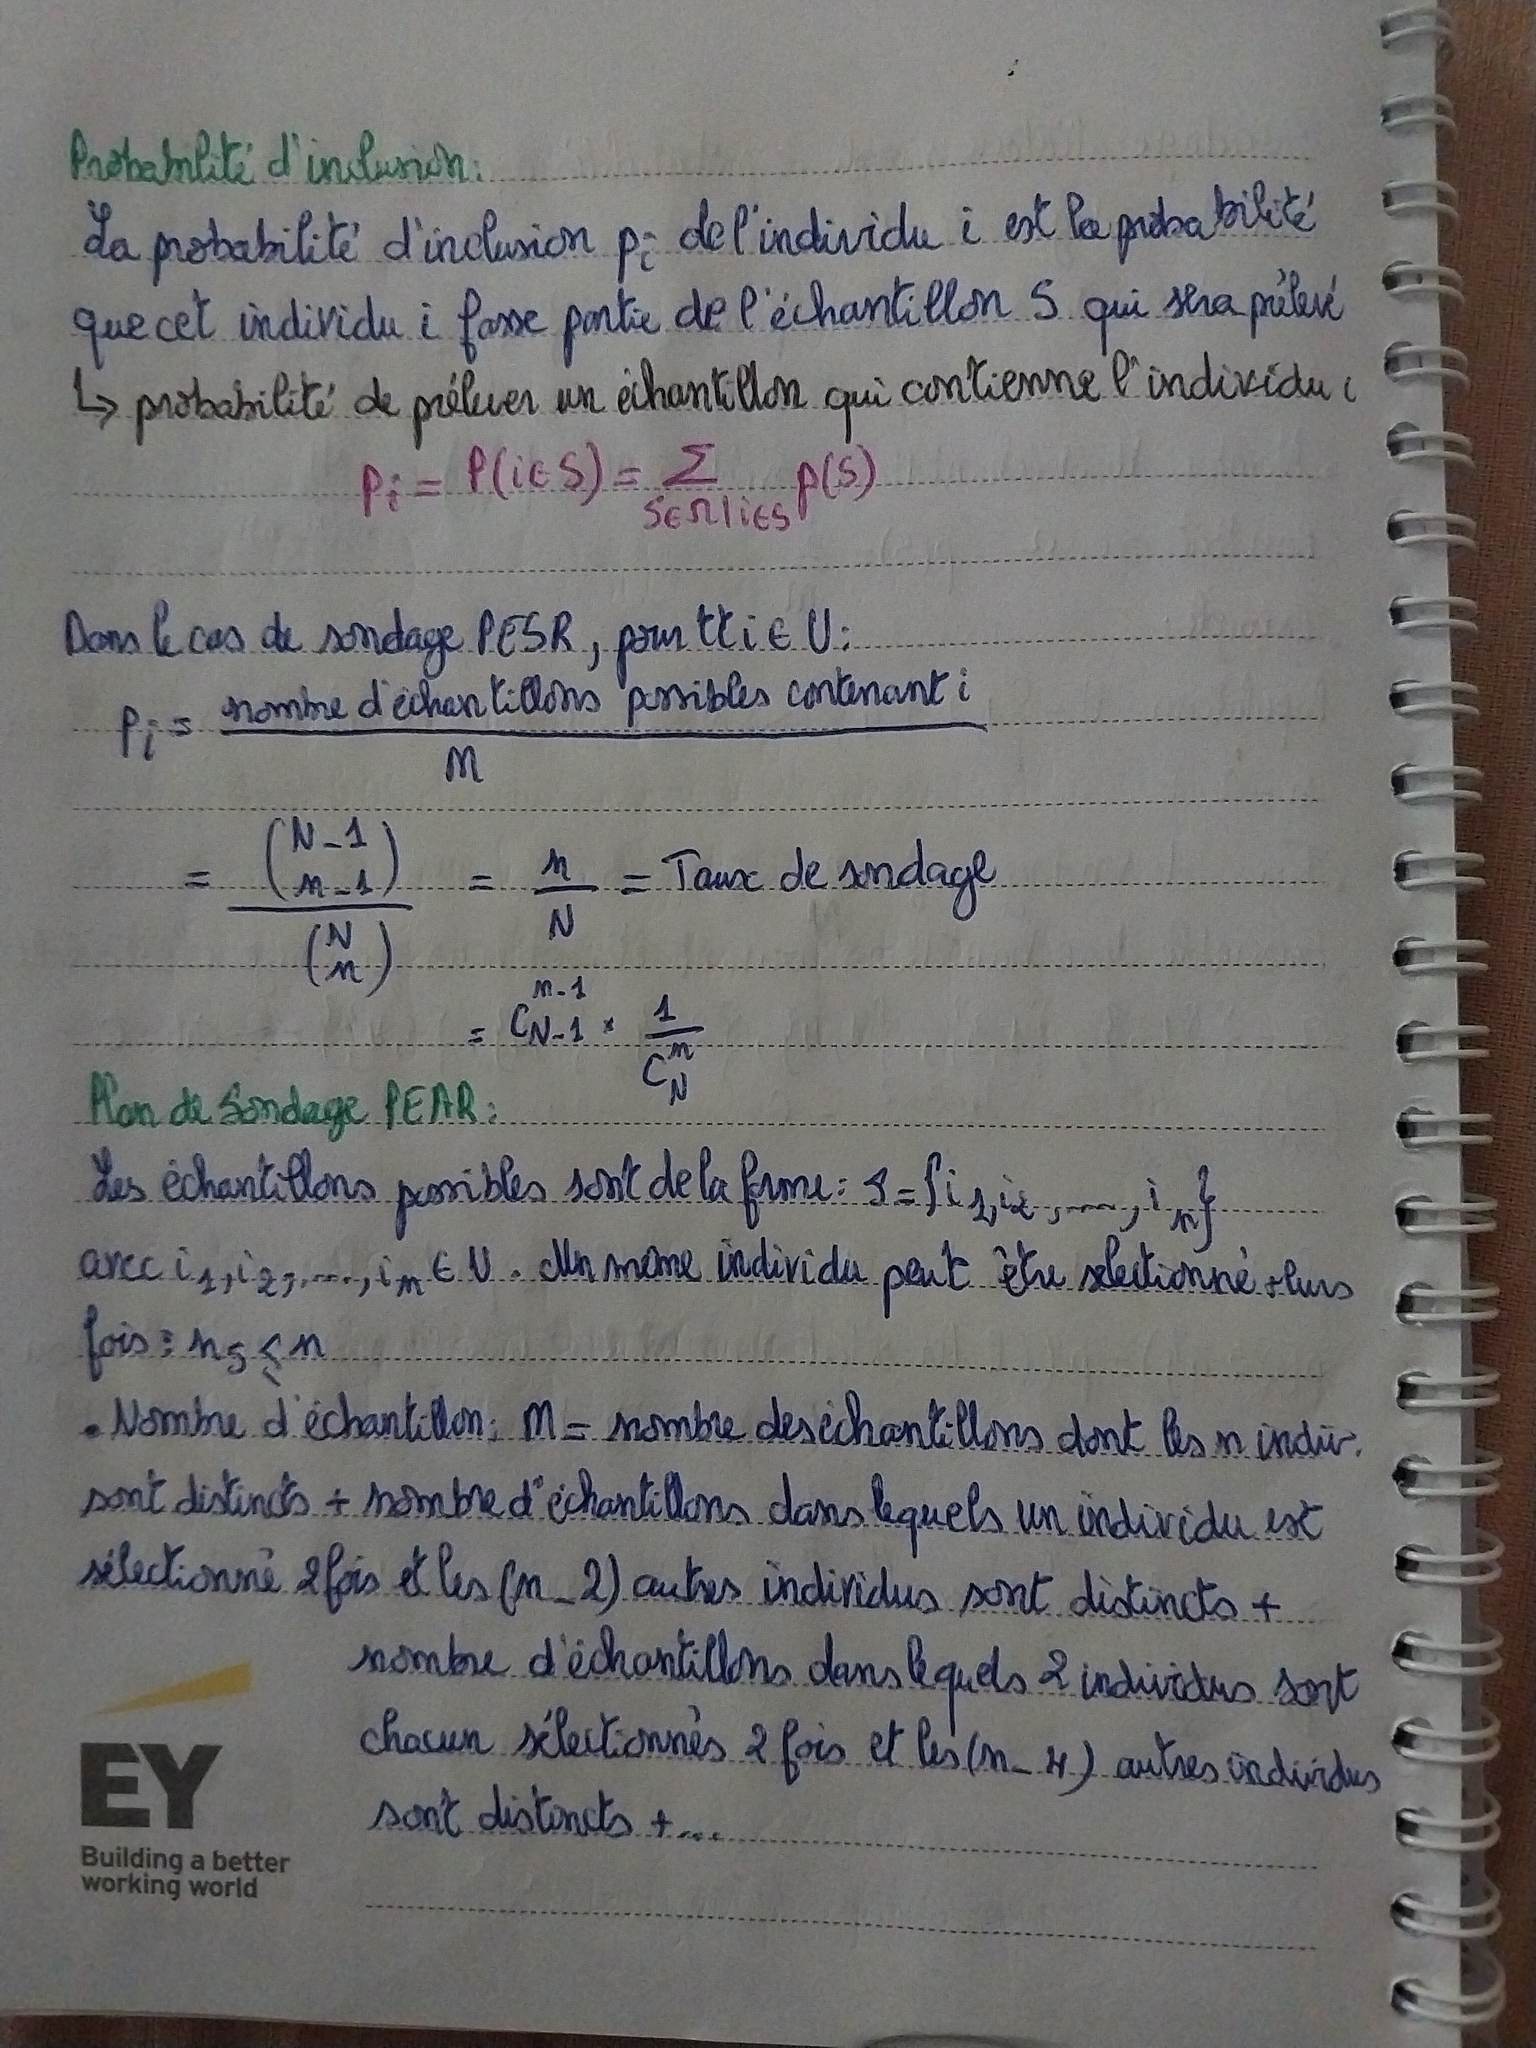 Probabilité d'inclusion:
La probabilité d'inclusion pi de l'individu i est la probabilité
que cet individu i fasse partie de l'échantillon S qui sera prélevé
↳ probabilité de prélever un échantillon qui contienne l'individu i
Pi = P(i∈S) = Σ p(S)
S∈Ω|i∈S
Dans le cas de sondage PESR, pour tt i ∈ U:
Pi = nombre d'échantillons possibles contenant i
M
= (N-1 n-1) / (N n) = n/N = Taux de sondage
= C_{N-1}^{n-1} × 1/C_N^n
Plan de Sondage PEAR:
Les échantillons possibles sont de la forme: S = {i1, i2, ....., in}
avec i1, i2, ....., in ∈ U. Un même individu peut être selectionné +eurs
fois: nS ≤ n
• Nombre d'échantillon: M = nombre des échantillons dont les n indiv.
sont distincts + nombre d'échantillons dans lequels un individu est
sélectionné 2 fois et les (n-2) autres individus sont distincts +
nombre d'échantillons dans lequels 2 individus sont
chacun sélectionnés 2 fois et les (n-4) autres individus
sont distincts + ...
EY
Building a better
working world